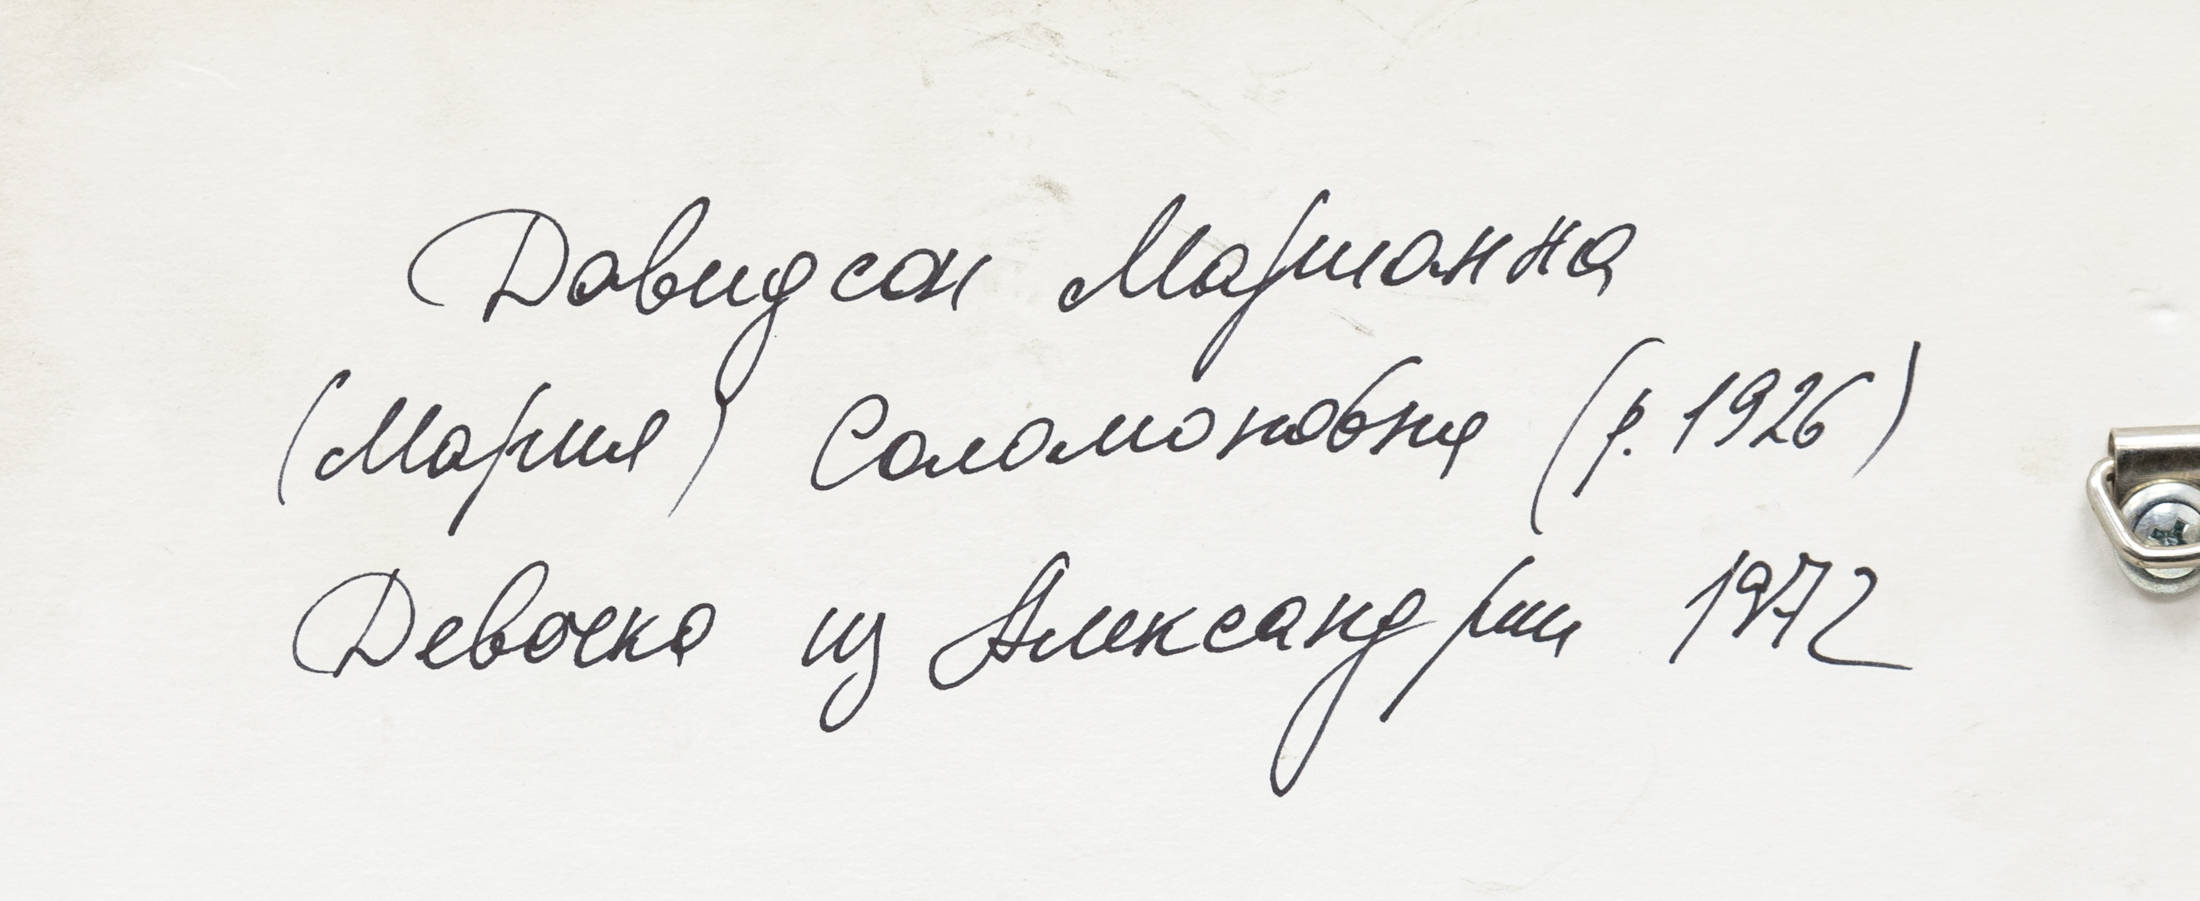 Давидсон Марианна
(Мария) Соломоновна (р. 1926)
Девочка из Александрии 1972